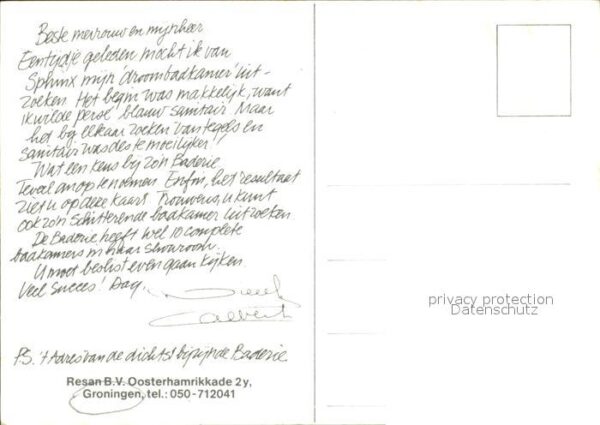 Beste mevrouw en mijnheer
Een tijdje geleden mocht ik van
Sphinx mijn 'droombadkamer' uit-
zoeken. Het begin was makkelijk, want
ik wilde persé blauw sanitair. Maar
het bij elkaar zoeken van tegels en
sanitair was des te moeilijker!
Wat een keus bij zo'n Baderie.
Teveel om op te noemen. Enfin, het resultaat
ziet u op deze kaart. Trouwens, u kunt
ook zo'n schitterende badkamer uitzoeken
De Baderie heeft wel 10 complete
badkamers in haar showroom.
U moet beslist even gaan kijken.
Veel succes! Dag,
PS. 't Adres van de dichtst bijzijnde Baderie
Resan B.V. Oosterhamrikkade 2y,
Groningen, tel.: 050-712041
privacy protection
Datenschutz